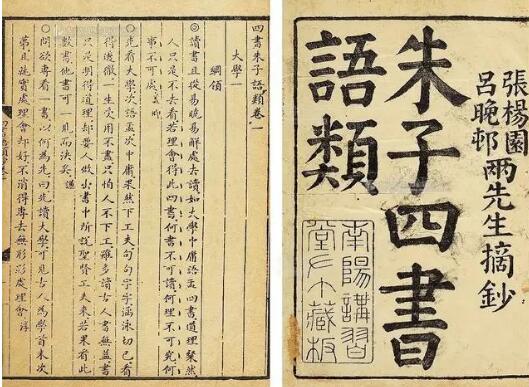 張楊園
呂晚邨兩先生摘鈔
朱子四書
語類
南陽講習
藏板
四書朱子語類卷一
大學一
綱領
◎讀書且從易曉易解處去讀如大學中庸語孟四書道理粲然
人只是不去看若理會得此四書何書不可讀何理不可究何
事不可處蓋卿
○先看大學次語孟次中庸果然下工夫句句字字涵泳切己看
得透徹一生受用不盡只怕人不下工雖多讀古人書無益書
只是明得道理却要人做出書中所說聖賢工夫來若果看此
數書他書可一見而決矣謙
○問欲專看一書以何為先曰先讀大學可見古人為學首末次
第且就實處理會却好不消得專去無形影處理會淳